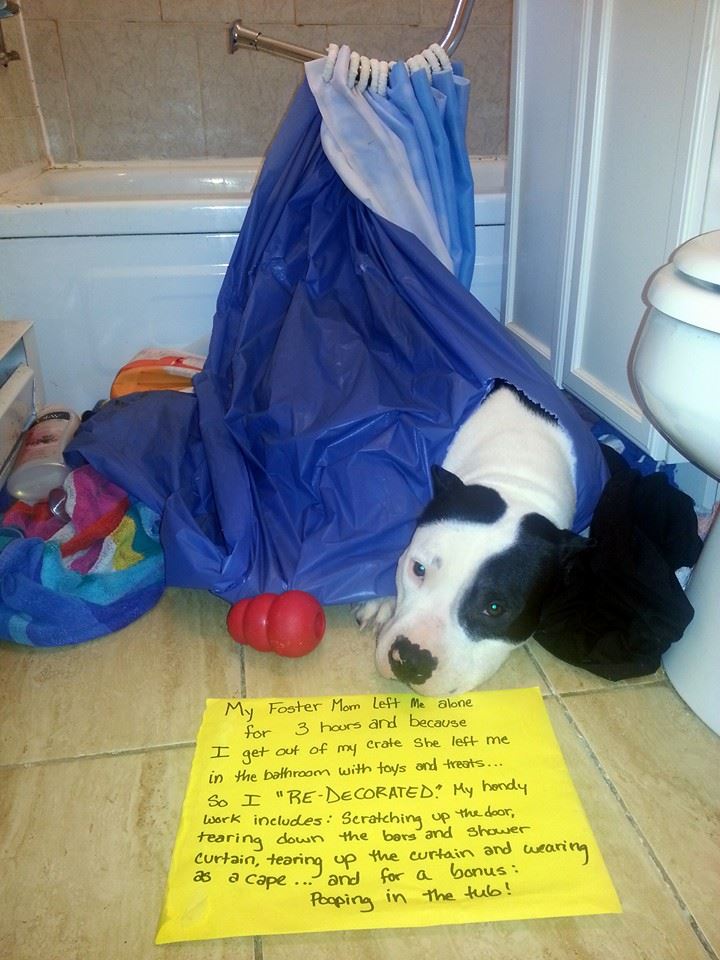 My Foster Mom Left Me alone
for 3 hours and because
I get out of my crate she left me
in the bathroom with toys and treats...
So I "RE-DECORATED." My handy
work includes: Scratching up the door,
tearing down the bars and shower
curtain, tearing up the curtain and wearing
as a cape... and for a bonus:
Pooping in the tub!